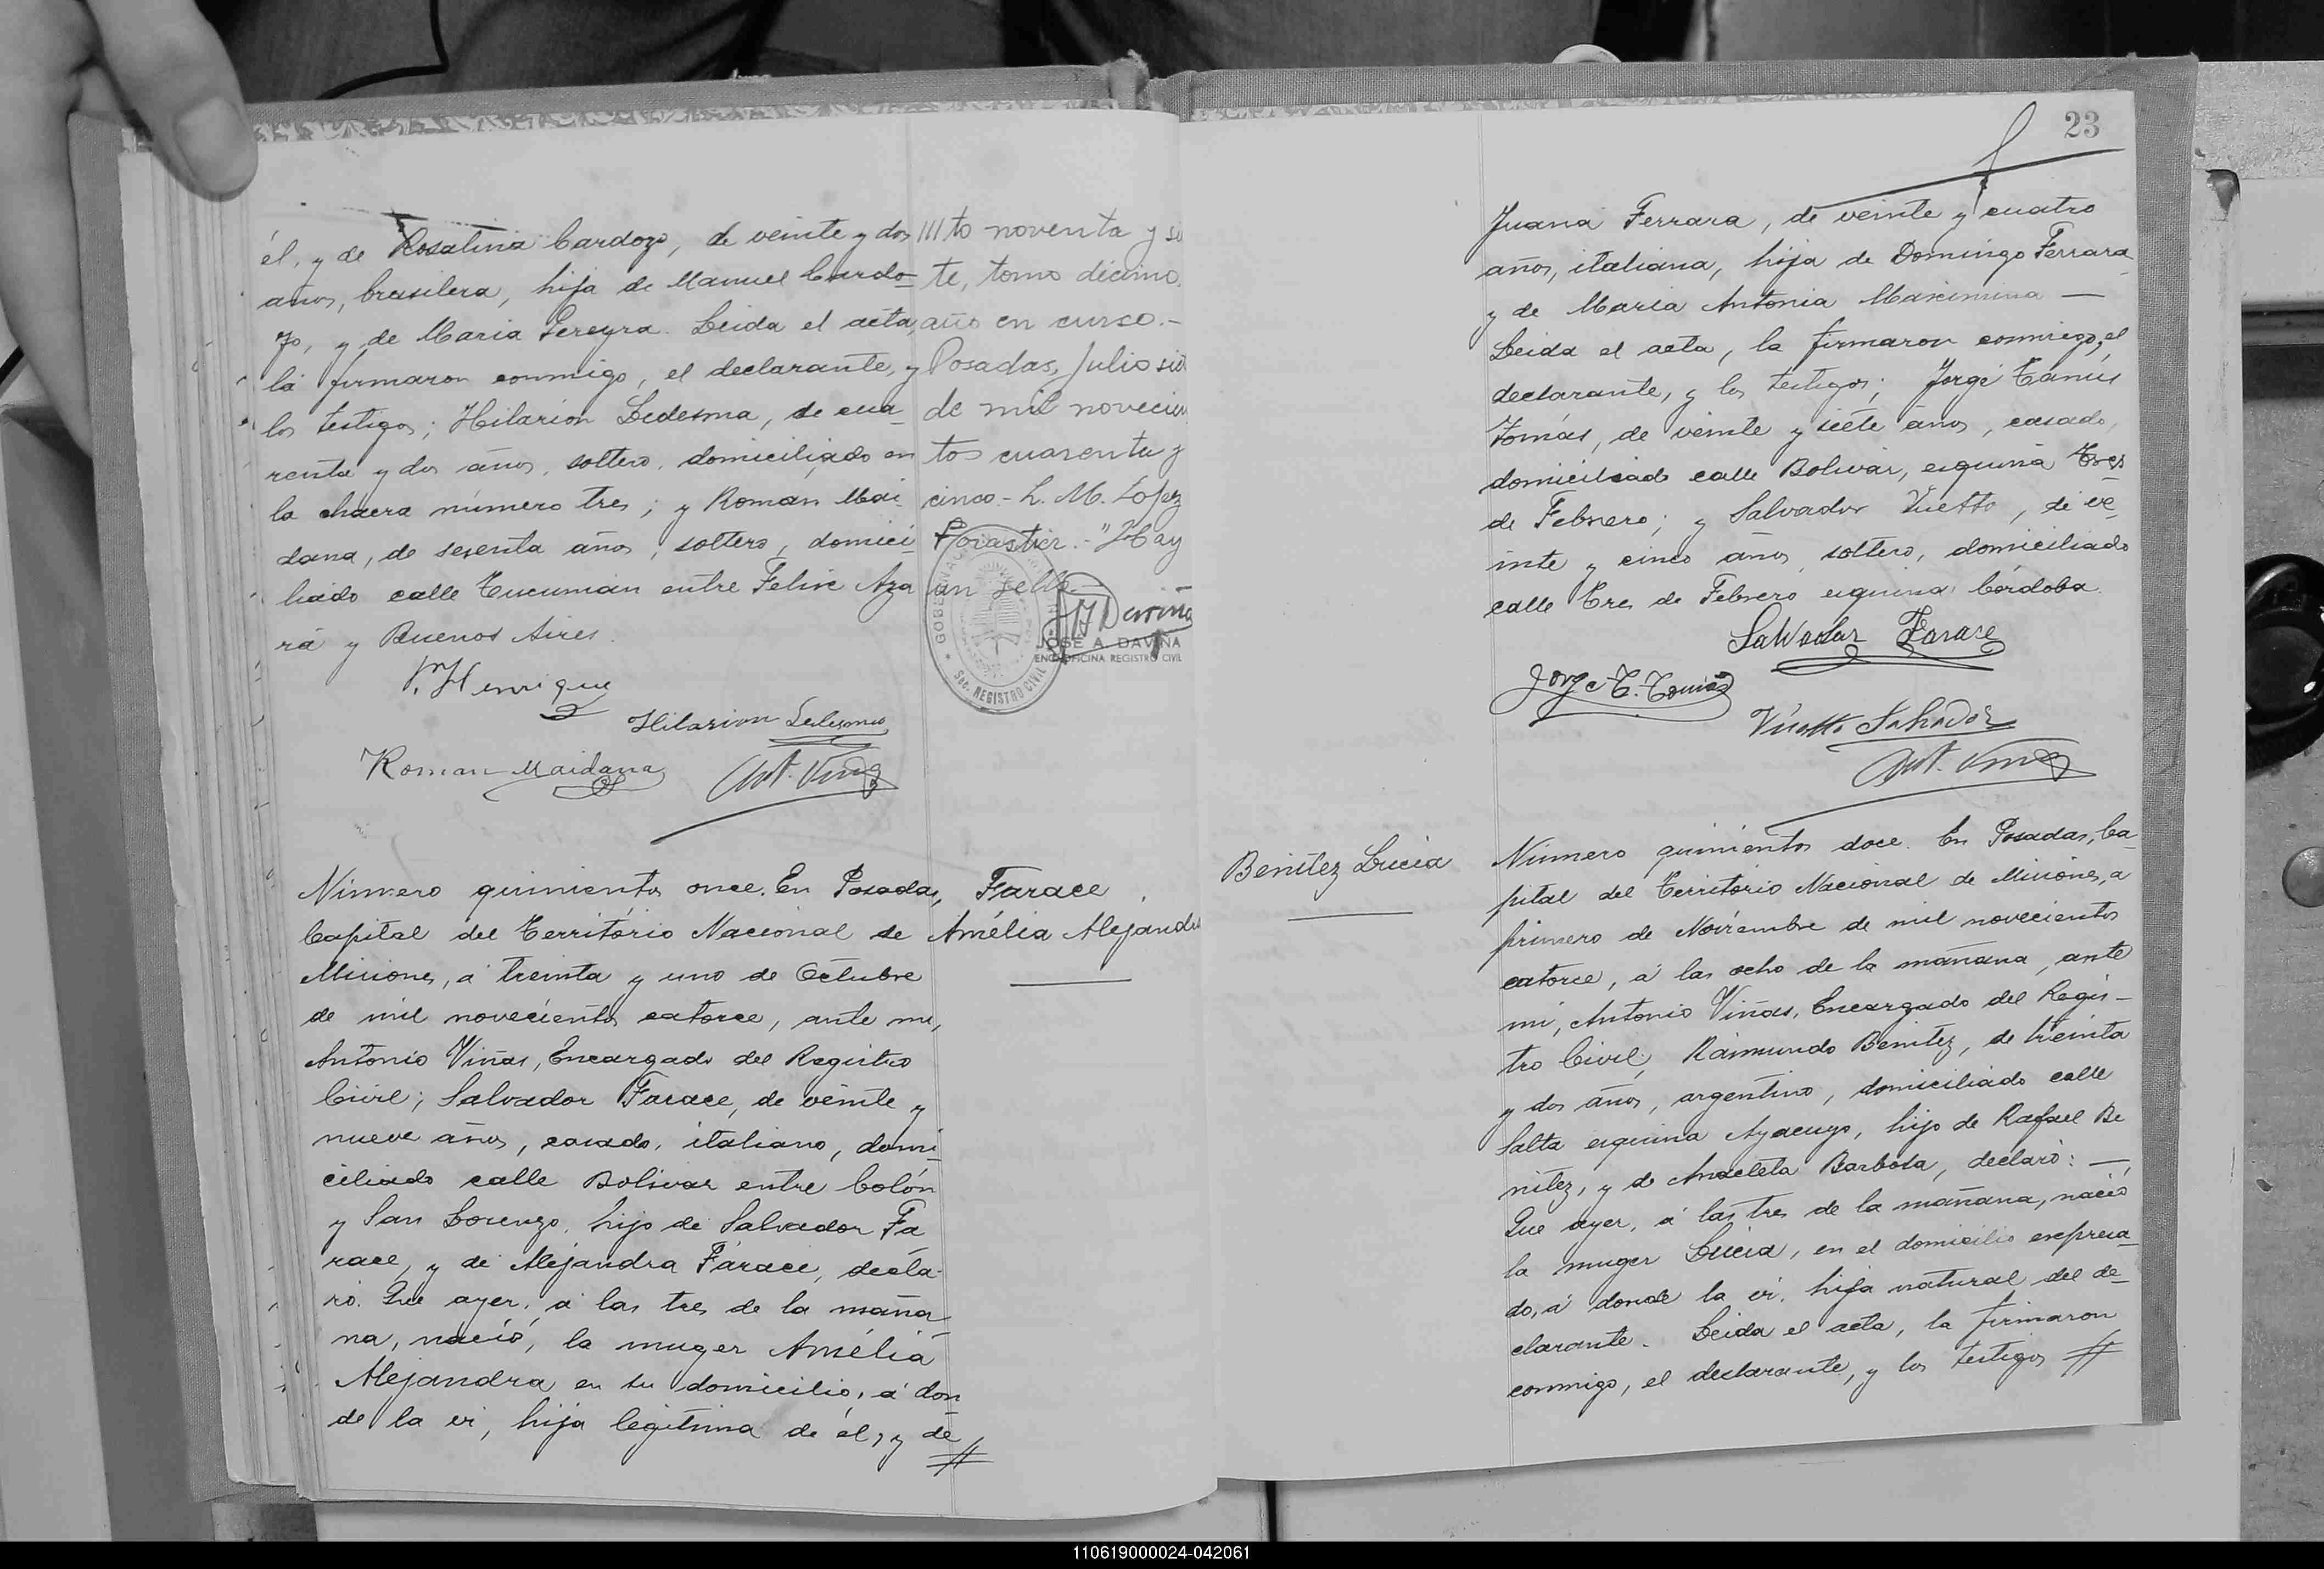 él, y de Rosalina Cardozo, de veinte y dos
años, brasilera, hija de Manuel Cardo-
zo, y de Maria Pereyra. Leida el acta,
la firmaron conmigo, el declarante, y
los testigos; Hilarión Ledesma, de cua-
renta y dos años, soltero, domiciliado en
la chacra número tres; y Román Mai-
dana, de sesenta años, soltero, domici-
liado calle Tucumán entre Felix Aza
ra y Buenos Aires.
Henrique
Hilarion Ledesma
Roman Maidana
Ant. Viñas
IIIto noventa y si
te, tomo décimo.
año en curso.-
Posadas, Julio sie
de mil novecien
tos cuarenta y
cinco.- L. M. Lopez
Forastier.- "Hay
un sello.-
GOBERNA
Sec. REGISTRO CIVIL
JOSÉ A. DAVIÑA
ENC. OFICINA REGISTRO CIVIL
Número quinientos once. En Posadas,
Capital del Território Nacional de
Misiones, a treinta y uno de Octubre
de mil novecientos catorce, ante mi,
Antonio Viñas, Encargado del Registro
Civil; Salvador Farace, de veinte y
nueve años, casado, italiano, domi-
ciliado calle Bolivar entre Colón
y San Lorenzo, hijo de Salvador Fa
race, y de Alejandra Farace, decla-
ró. Que ayer, a las tres de la maña-
na, nació, la muger Amélia
Alejandra en su domicilio, a don
de la ví, hija legitima de él, y de
Farace
Amélia Alejandra
23
Juana Ferrara, de veinte y cuatro
años, italiana, hija de Domingo Ferrara
y de Maria Antonia Maximina —
Leida el acta, la firmaron conmigo, el
declarante, y los testigos; Jorge Tanús
Tomás, de veinte y siete años, casado,
domiciliado calle Bolivar, esquina Tres
de Febrero; y Salvador Vuetto, de ve-
inte y cinco años, soltero, domiciliado
calle Tres de Febrero esquina Córdoba.
Salvador Farace
Jorge T. Tomás
Vuetto Salvador
Ant. Viñas
Benitez Lucia
Número quinientos doce. En Posadas, Ca-
pital del Território Nacional de Misiones, a
primero de Noviembre de mil novecientos
catorce, a las ocho de la mañana, ante
mi, Antonio Viñas, Encargado del Regis-
tro Civil, Raimundo Benitez, de treinta
y dos años, argentino, domiciliado calle
Salta esquina Ayacuyo, hijo de Rafael Be
nitez, y de Anacleta Barbosa, declaró: —
Que ayer, a las tres de la mañana, nació
la muger Lucia, en el domicilio expresa-
do, a donde la ví, hija natural del de-
clarante. Leida el acta, la firmaron
conmigo, el declarante, y los testigos
110619000024-042061